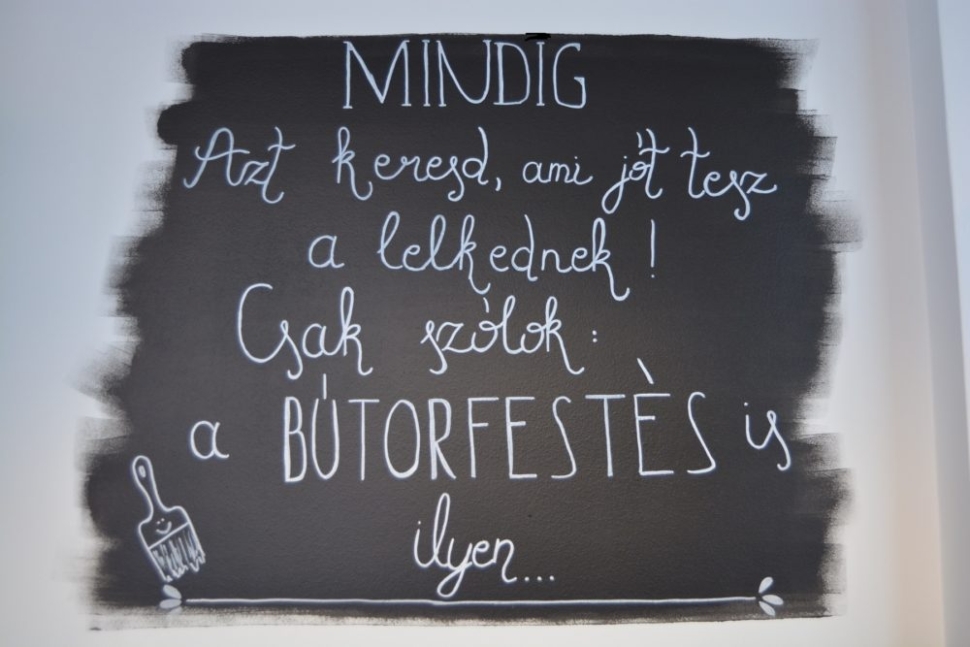 MINDIG
Azt keresd, ami jót tesz
a lelkednek!
Csak szólok:
a BÚTORFESTÈS is
ilyen...